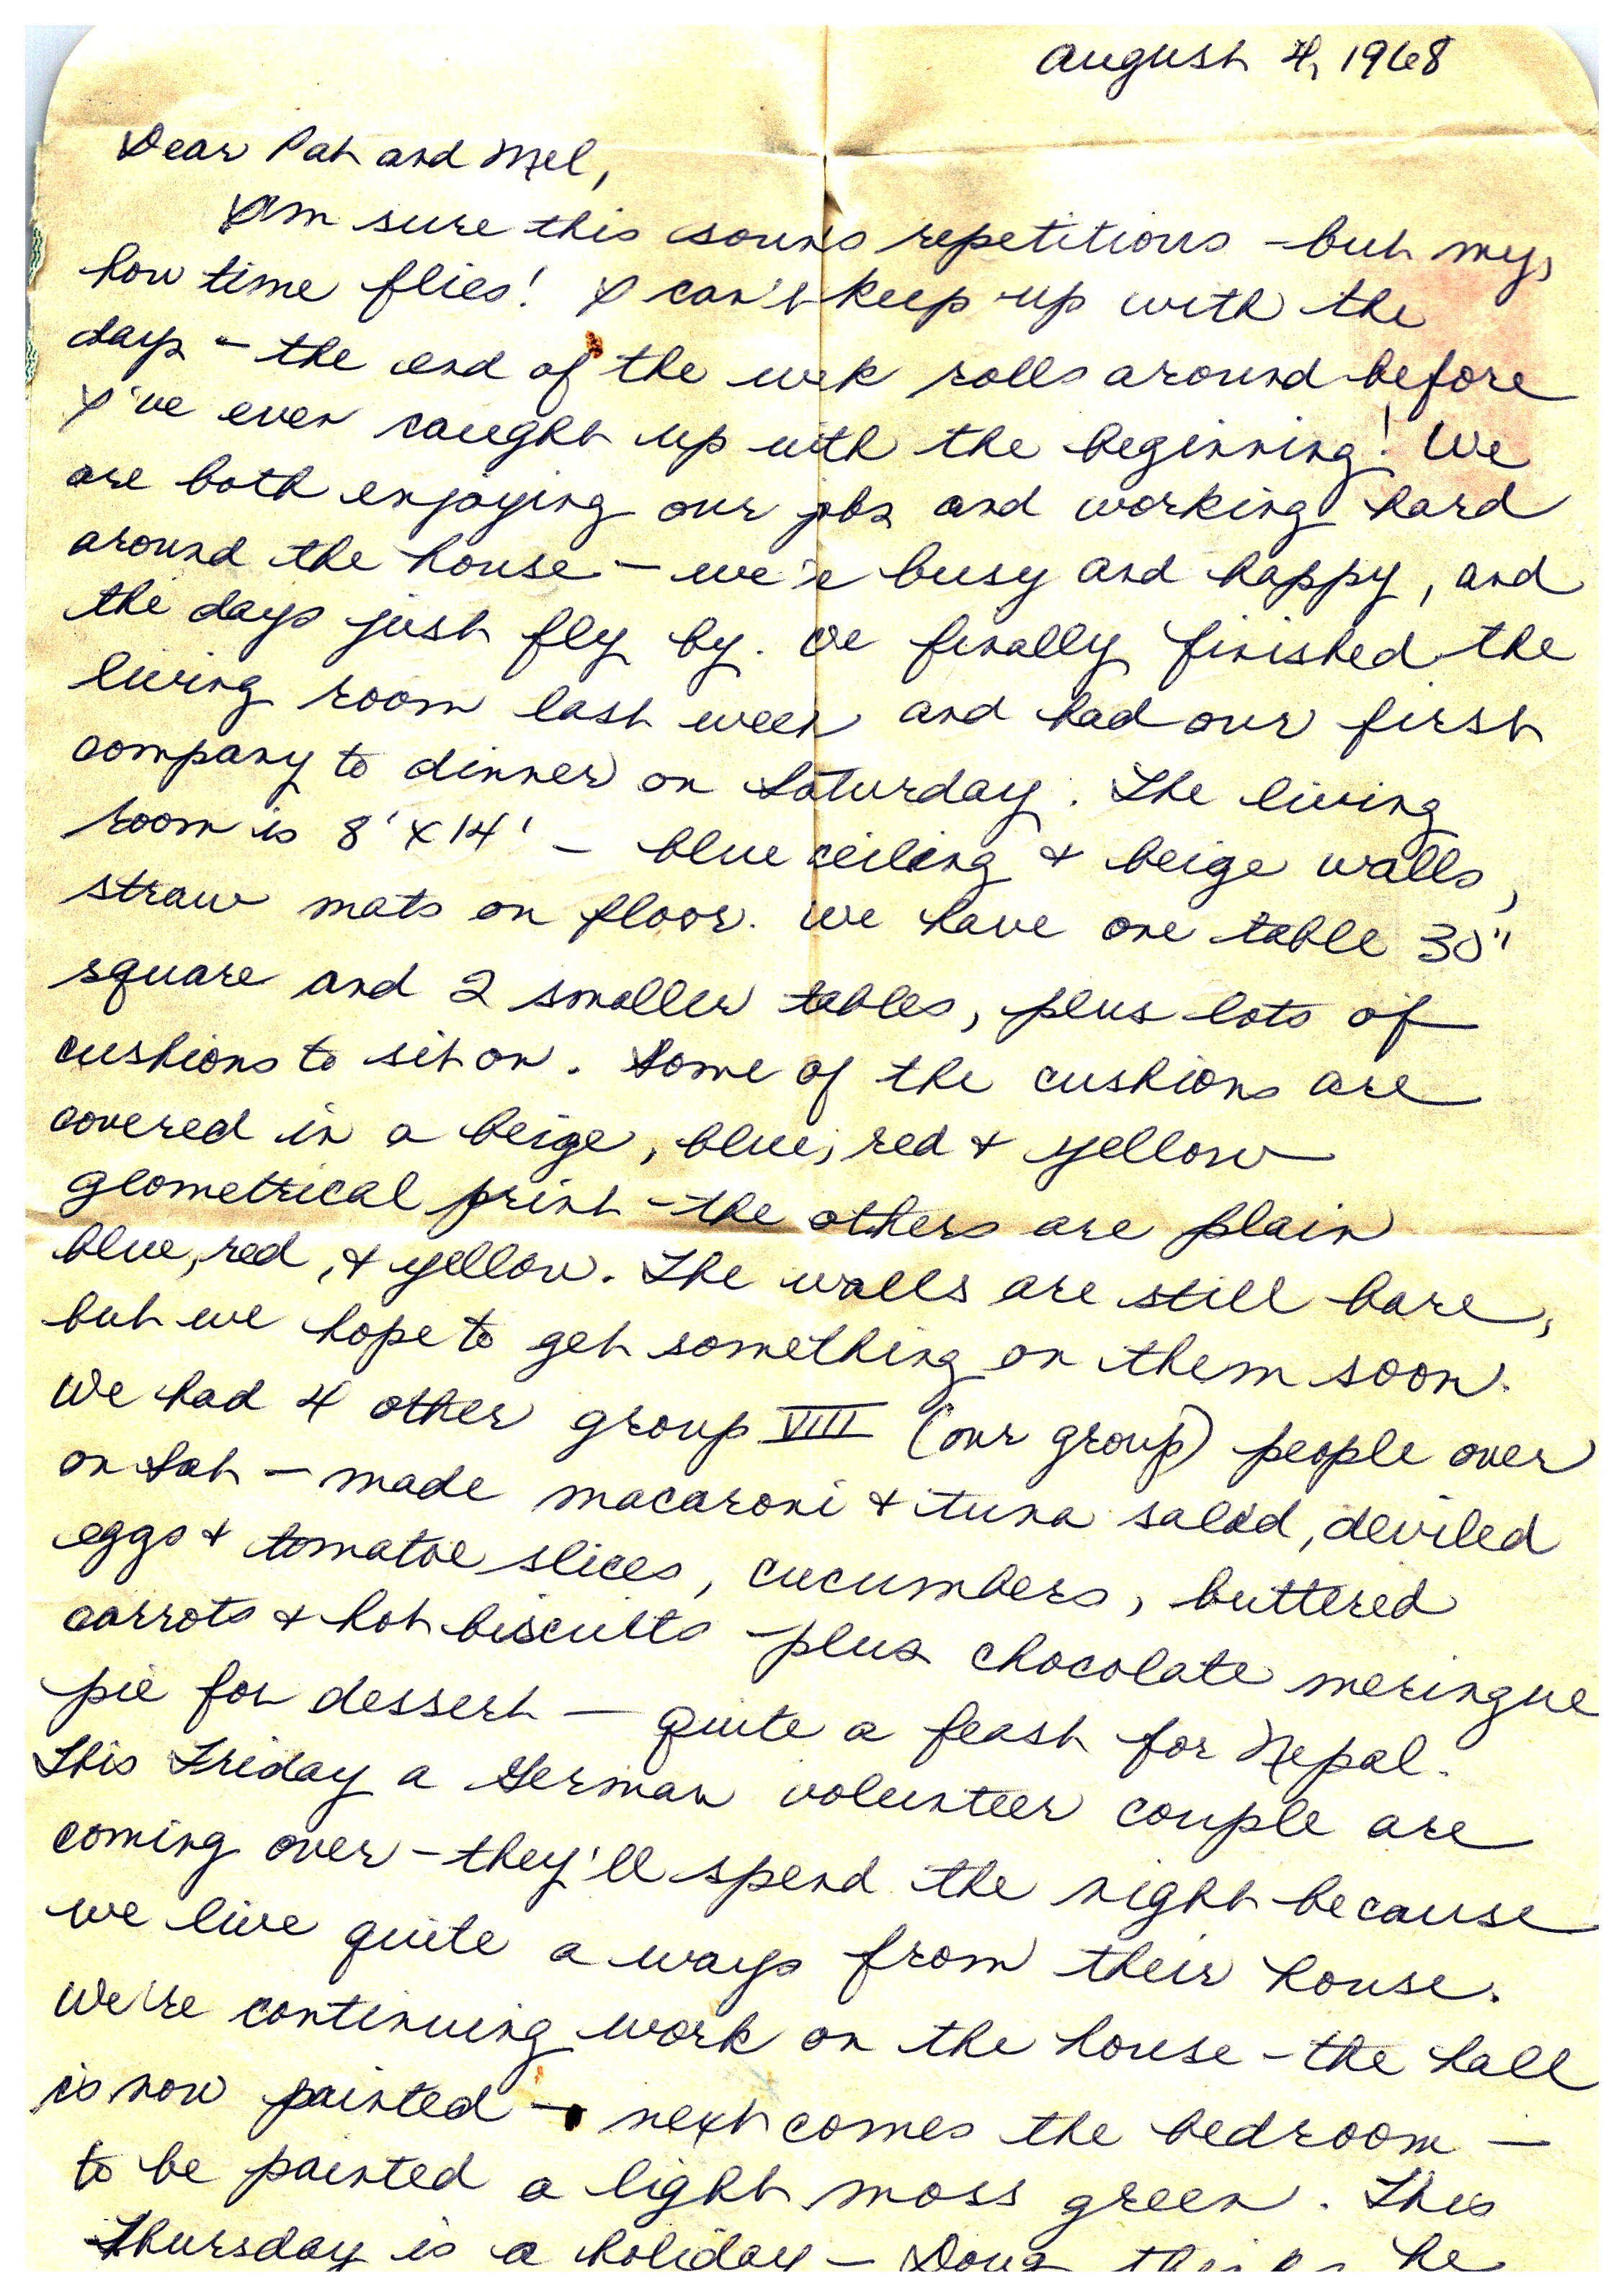 August 4, 1968
Dear Pat and Mel,
I'm sure this sounds repetitious - but my,
how time flies! I can't keep up with the
days - the end of the week rolls around before
I've even caught up with the beginning! We
are both enjoying our jobs and working hard
around the house - we're busy and happy, and
the days just fly by. We finally finished the
living room last week and had our first
company to dinner on Saturday. The living
room is 8' x 14' - blue ceiling & beige walls,
straw mats on floor. We have one table 30"
square and 2 smaller tables, plus lots of
cushions to sit on. Some of the cushions are
covered in a beige, blue, red & yellow
geometrical print - the others are plain
blue, red, & yellow. The walls are still bare,
but we hope to get something on them soon.
We had 4 other group VIII (our group) people over
on Sat - made macaroni & tuna salad, deviled
eggs & tomatoe slices, cucumbers, buttered
carrots & hot biscuits plus chocolate meringue
pie for dessert - quite a feast for Nepal.
This Friday a German volunteer couple are
coming over - they'll spend the night because
we live quite a ways from their house.
We're continuing work on the house - the hall
is now painted - next comes the bedroom -
to be painted a light moss green. This
Thursday is a holiday - Doug thinks he